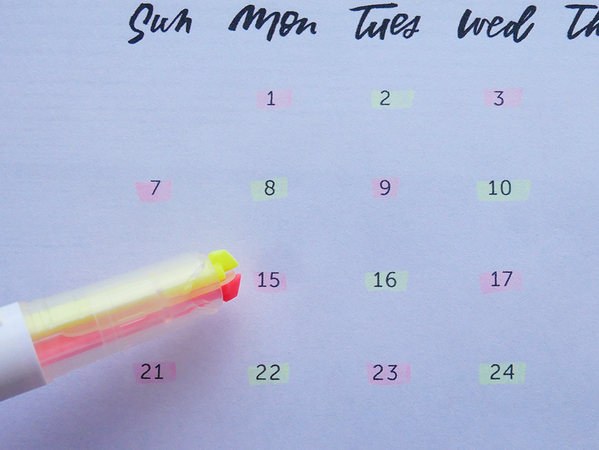 Sun Mon Tues Wed Th
1 2 3
7 8 9 10
15 16 17
21 22 23 24